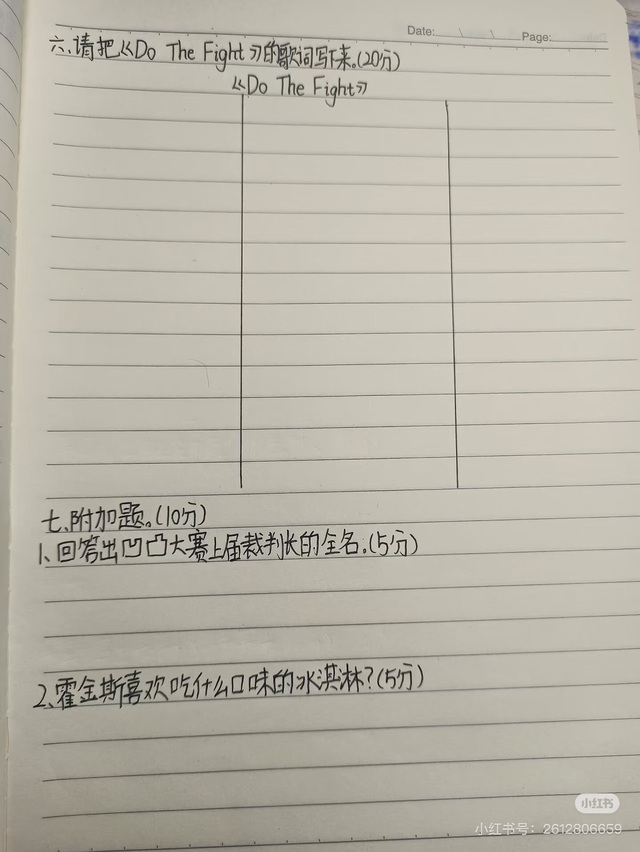 Date: Page:
六、请把《Do The Fight》的歌词写下来。(20分)
《Do The Fight》
七、附加题。(10分)
1、回答出凹凸大赛上届裁判长的全名。(5分)
2、霍金斯喜欢吃什么口味的冰淇淋?(5分)
小红书
小红书号:2612806659